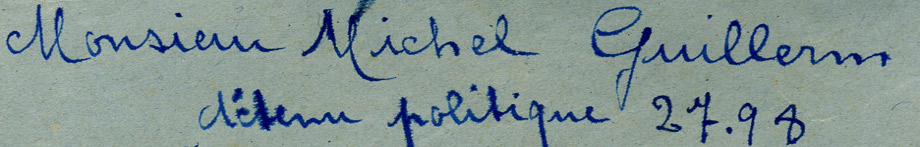 Monsieur Michel Guillerm
détenu politique 27.98